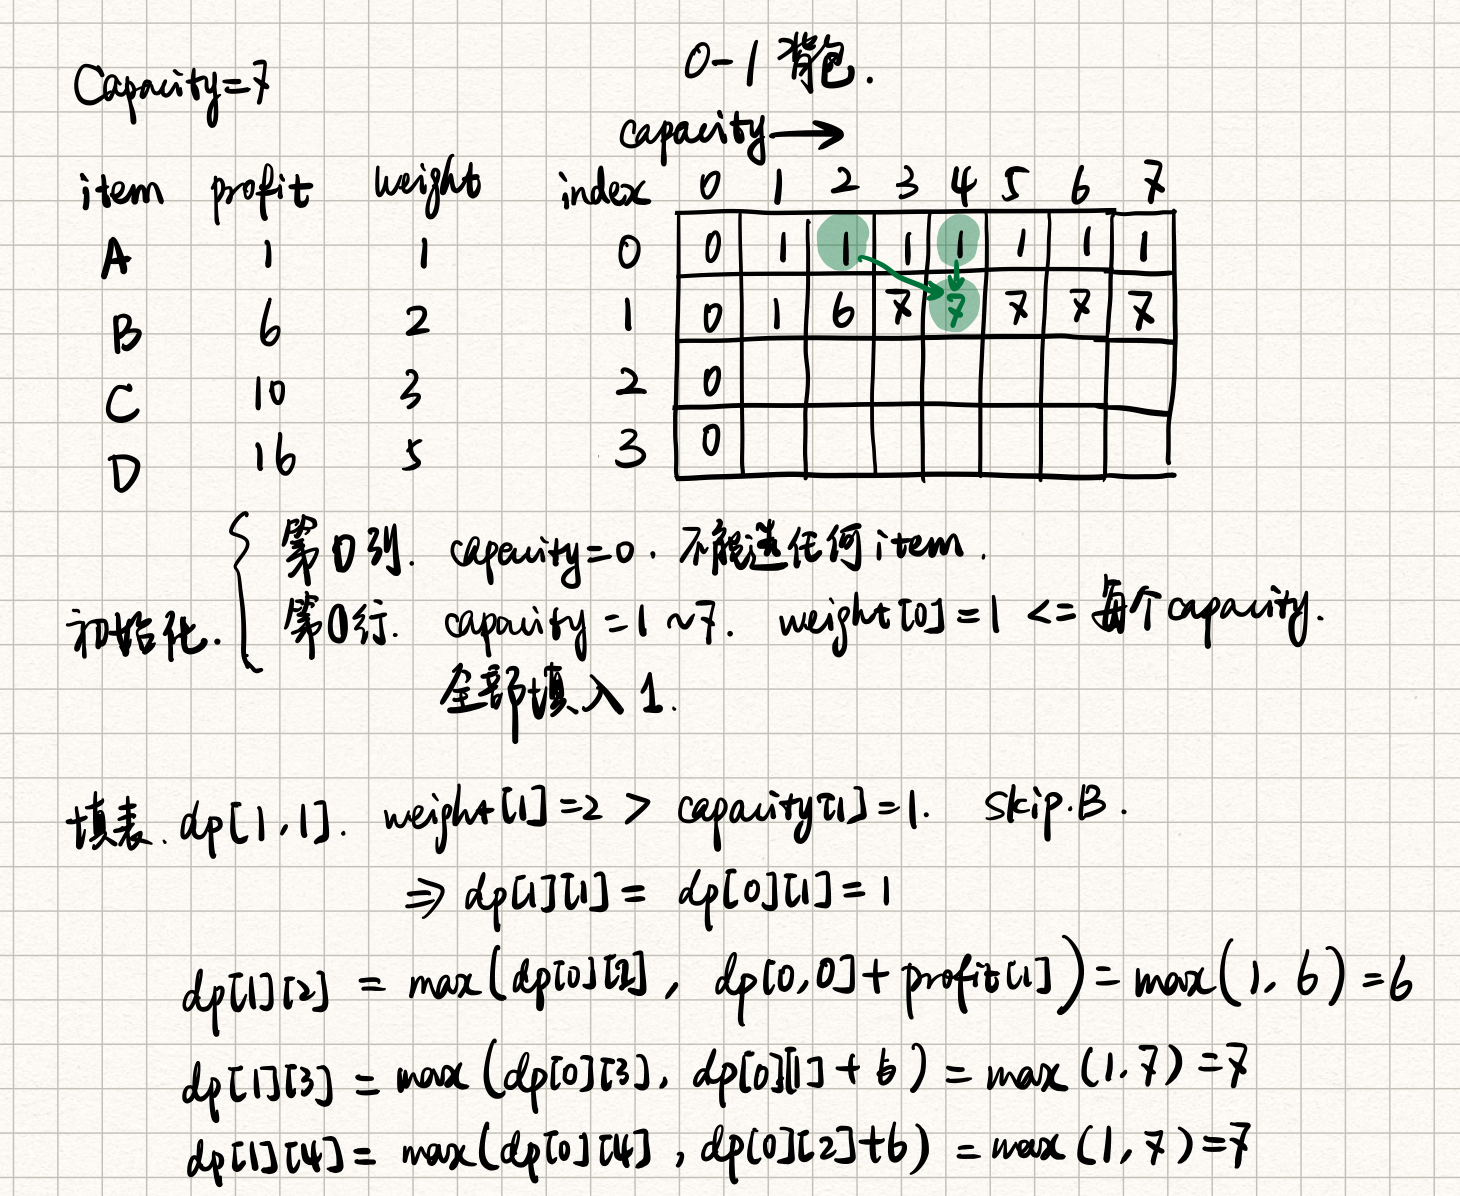 0-1 背包.
Capacity=7
capacity→
item profit weight index 0 1 2 3 4 5 6 7
A 1 1 0 0 1 1 1 1 1 1 1
B 6 2 1 0 1 6 7 7 7 7 7
C 10 3 2 0
D 16 5 3 0
第0列. capacity=0. 不能选任何item.
初始化. 第0行. capacity=1~7. weight[0]=1 <= 每个capacity.
全部填入1.
填表. dp[1,1]. weight[1]=2 > capacity[1]=1. Skip.B.
⇒ dp[1][1] = dp[0][1] = 1
dp[1][2] = max(dp[0][2], dp[0,0]+profit[1]) = max(1, 6) = 6
dp[1][3] = max(dp[0][3], dp[0][1]+6) = max(1.7) = 7
dp[1][4] = max(dp[0][4], dp[0][2]+6) = max(1,7) = 7